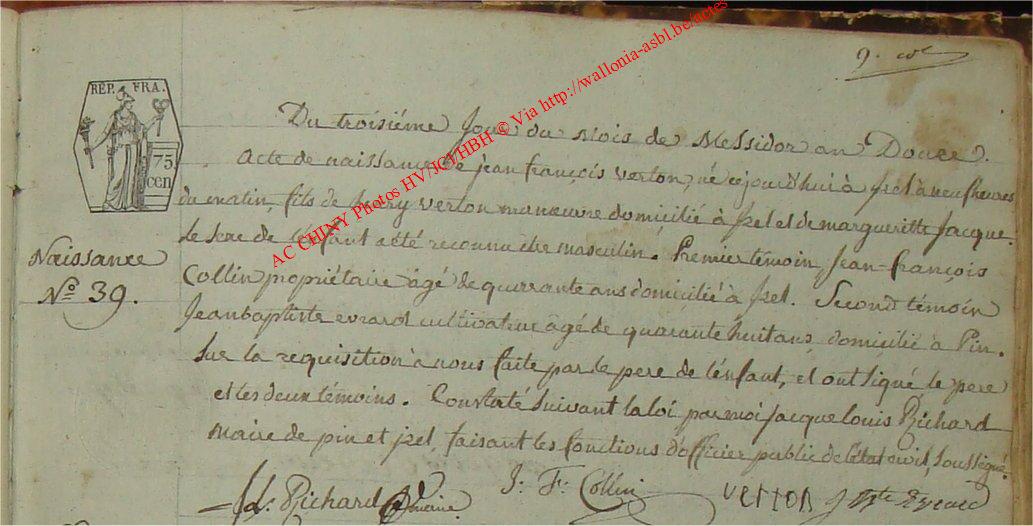 9. 
REP. FRA.
75
cen
Naissance
No. 39.
Du troisiéme Jour du Mois de Messidor an Douze.
Acte de naissance de jean françois verton, né cejourd'hui à jzel à neuf heures
du matin, fils de henry verton manœuvre domicilié à jzel et de margueritte Jacque.
Le sexe de L'enfant a été reconnu être masculin. Premier témoin, Jean-françois
Collin propriétaire âgé de quarante ans domicilié à jzel. Second témoin
Jean baptiste evrard cultivateur âgé de quarante huit ans, domicilié à Pin.
Sur la requisition à nous faite par le pere de l'énfant, et ont signé le pere
et les deux témoins. Constaté suivant la loi par moi jacque louis Richard
maire de pin et jzel faisant les fonctions d'officier public de l'état civil soussigné.
Richard maire
J. F. Collin
verton
AC CHINY Photos HV/JCJ/HBH © Via http://wallonia-asbl.be/actes